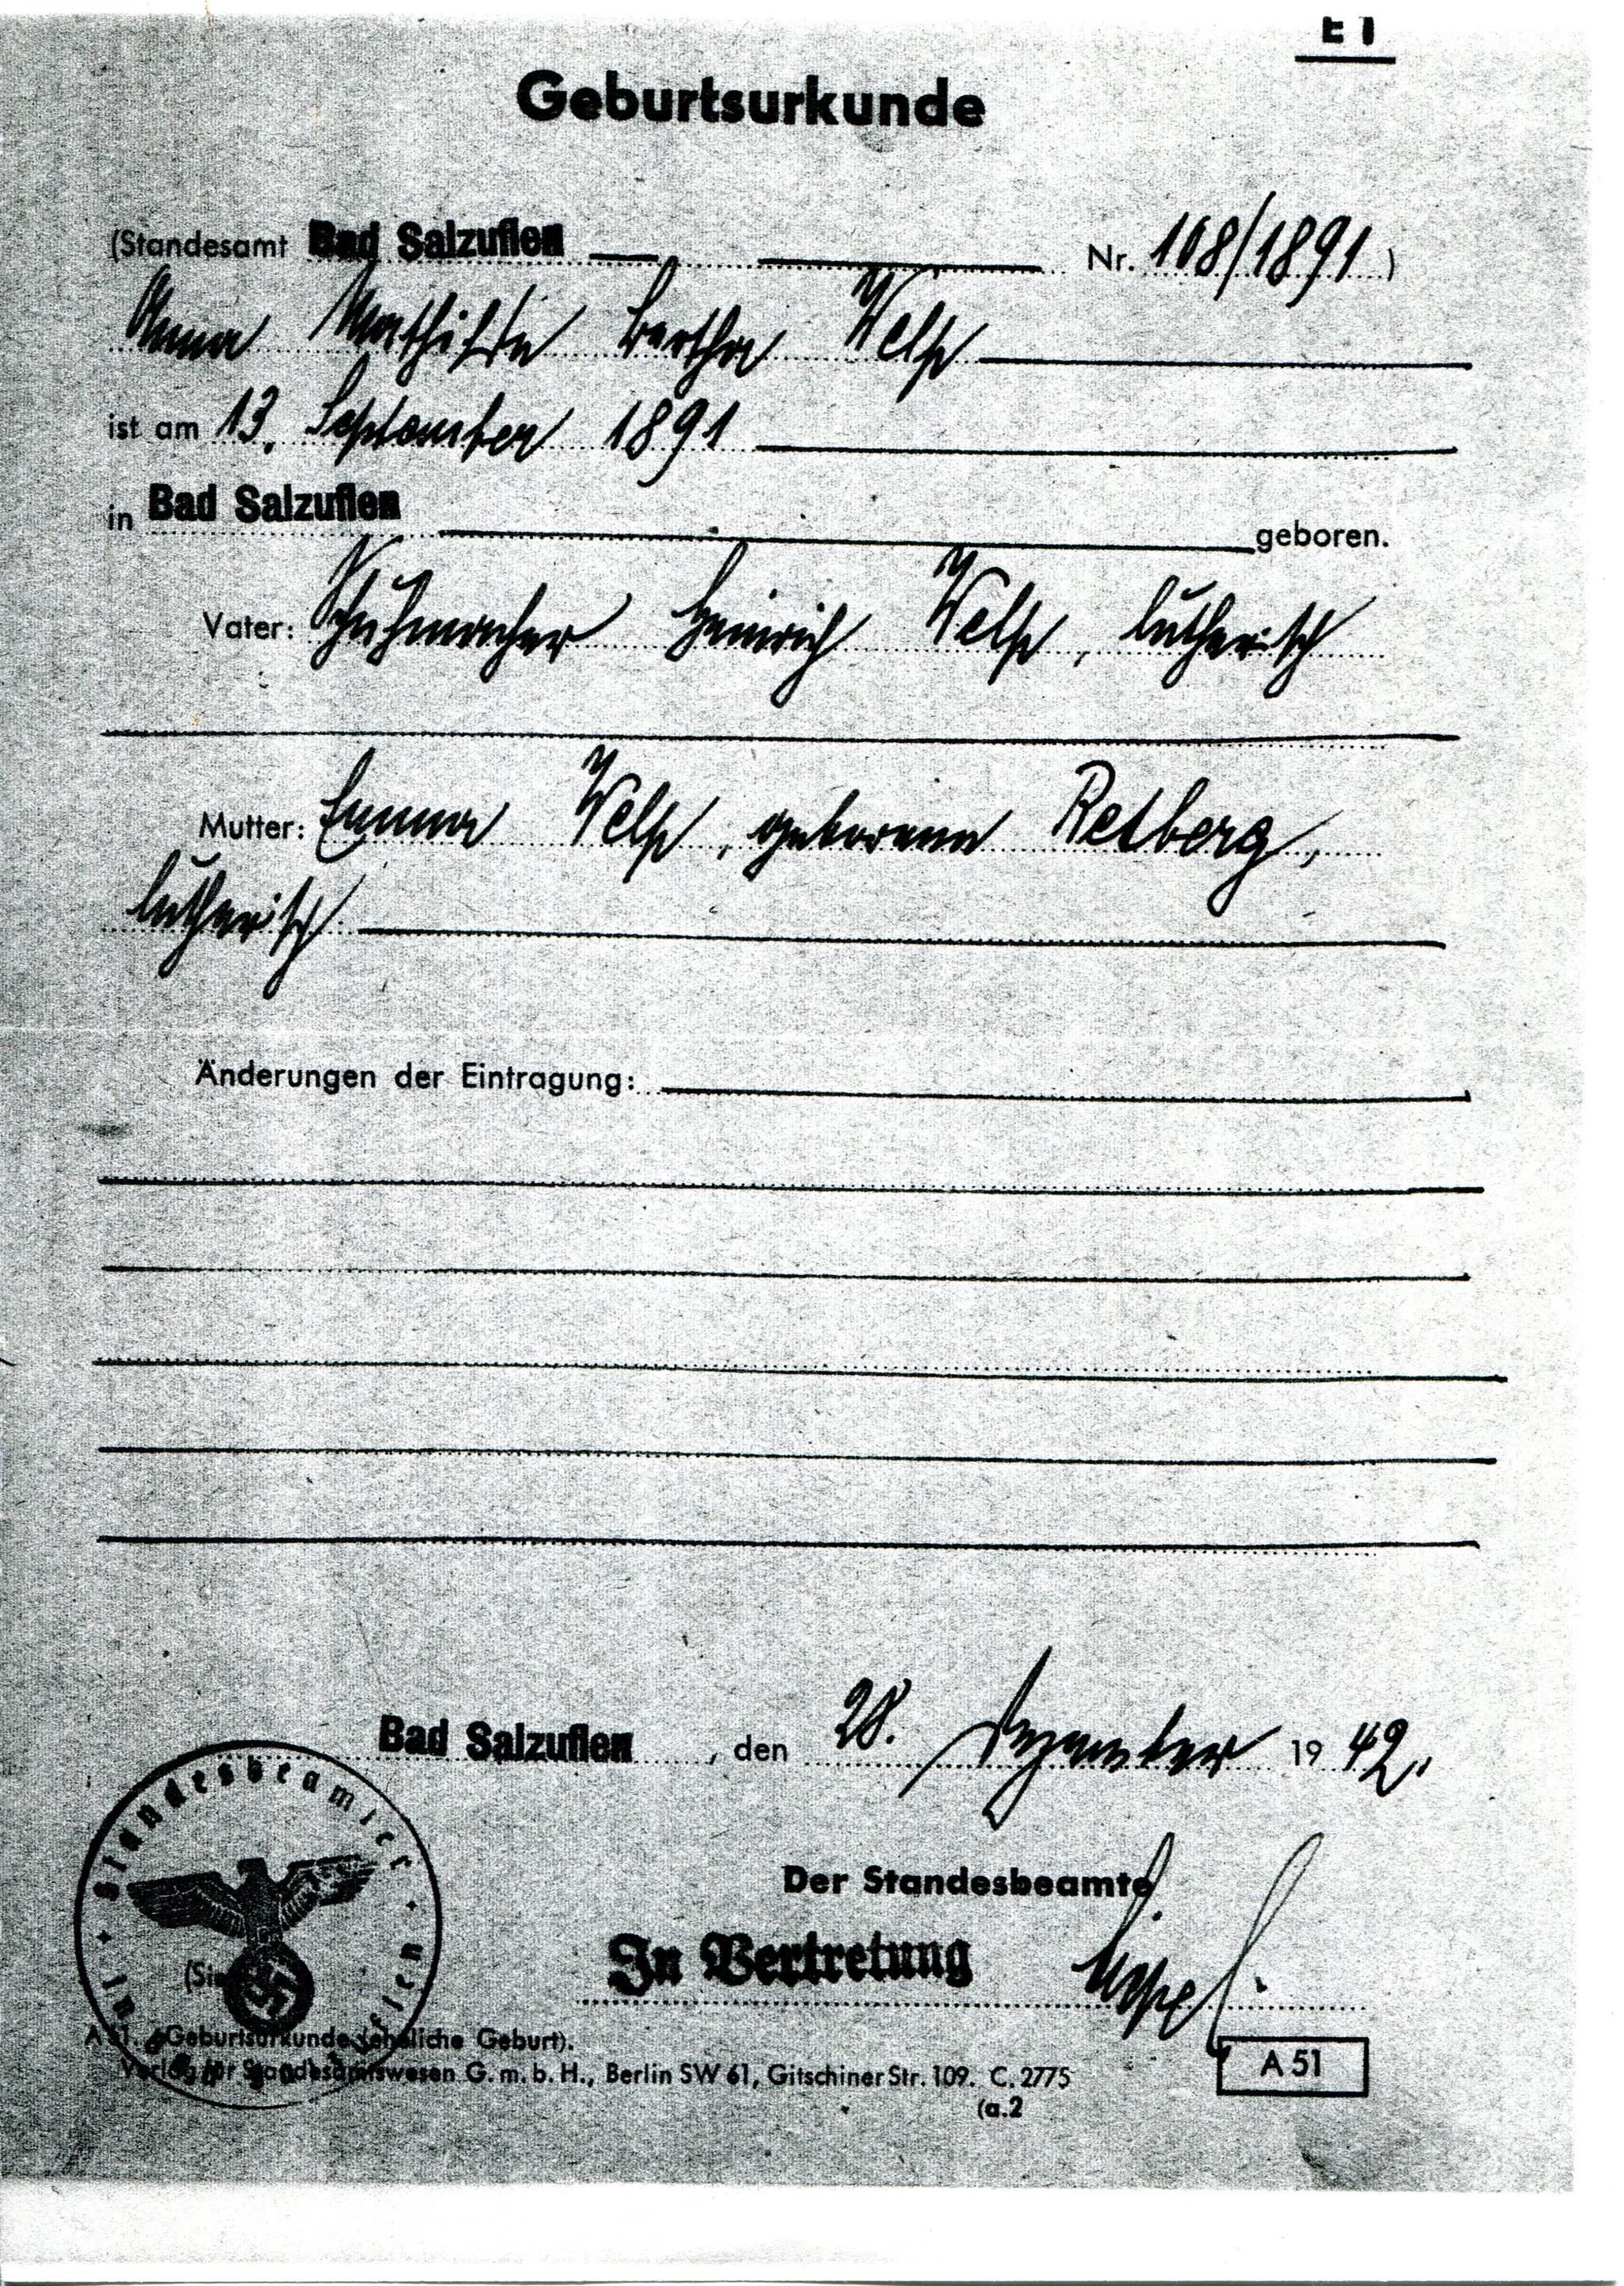 E 1
Geburtsurkunde
(Standesamt Bad Salzuflen Nr. 108/1891)
Anna Mathilde Bertha Welp
ist am 13. September 1891
in Bad Salzuflen geboren.
Vater: Schuhmacher Heinrich Welp, lutherisch
Mutter: Emma Welp, geborene Retberg,
lutherisch
Änderungen der Eintragung:
Bad Salzuflen, den 28. Dezember 1942.
Standesbeamter
Der Standesbeamte
In Vertretung
A 51. Geburtsurkunde (eheliche Geburt).
Verlag für Standesamtswesen G. m. b. H., Berlin SW 61, Gitschiner Str. 109. C. 2775
(a.2
A 51